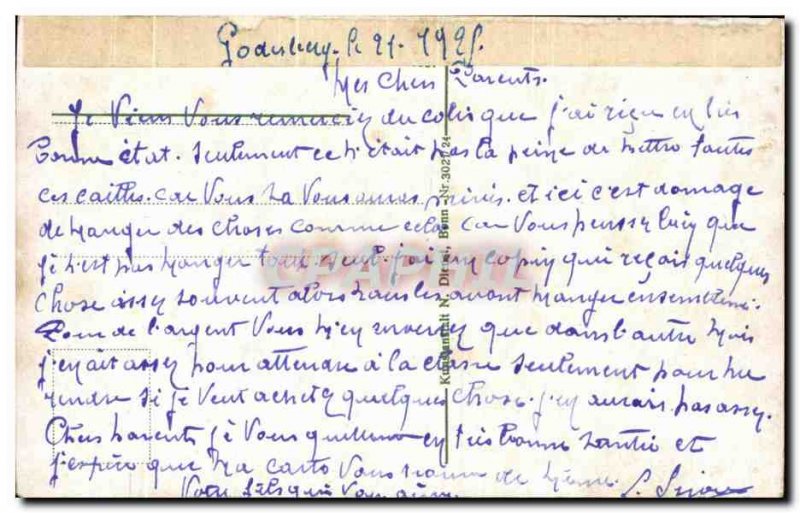 Godesberg. le 21. 1925.
Mes Chers Parents.
Je Viens Vous remerciez du colis que j'ai reçu en très
bonne état. Seulement ce n'était pas la peine de mettre toutes
ces cailles. car Vous Vous privés. et ici c'est domage
de manger des choses comme cela car Vous pensez bien que
je n'est pas manger tout seul. j'ai un copin qui reçois quelques
chose assez souvent alors nous les avont manger ensemble.
Pour de l'argent Vous m'en enverrez que dans l'autre mois
j'en ait assez pour attendre à la classe seulement pour me
rendre si je Veut achetez quelques chose. j'en aurais pas assez.
Chers parents je Vous quitte en très bonne santé et
j'espère que ma carte Vous de même.
Votre fils qui Vous aime.
Kunstanstalt N. Bonn - Nr. 3027 24
CPAPHIL